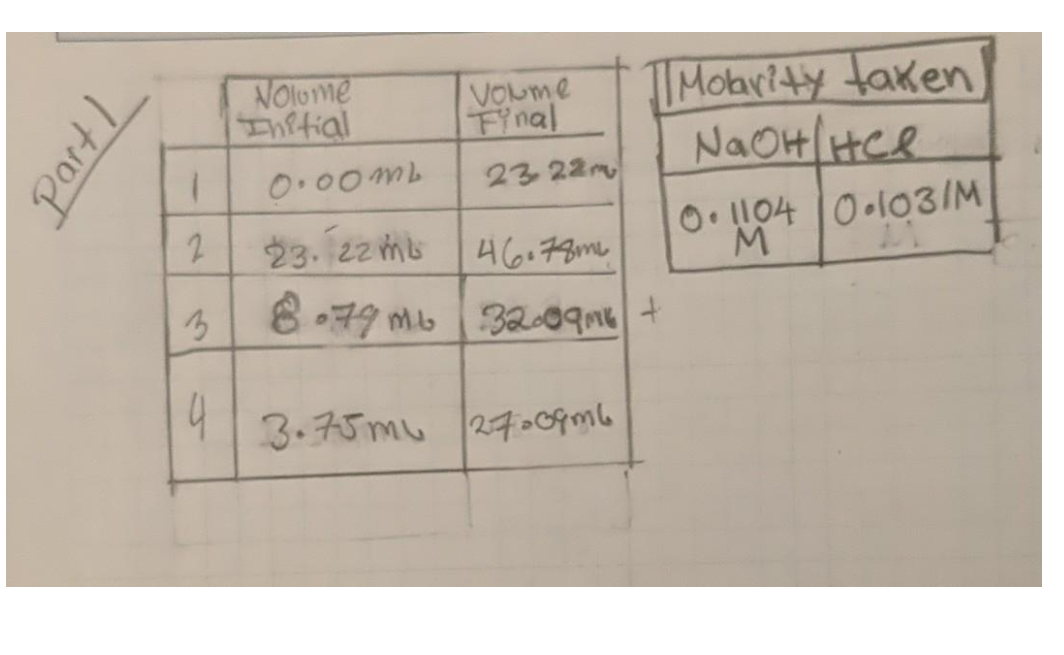 Part 1
Volume Initial | Volume Final
1 | 0.00 mL | 23.22 m
2 | 23.22 mL | 46.78 mL
3 | 8.79 mL | 32.09 mL +
4 | 3.75 mL | 27.09 mL
Molarity taken
NaOH | HCl
0.1104 M | 0.1031 M